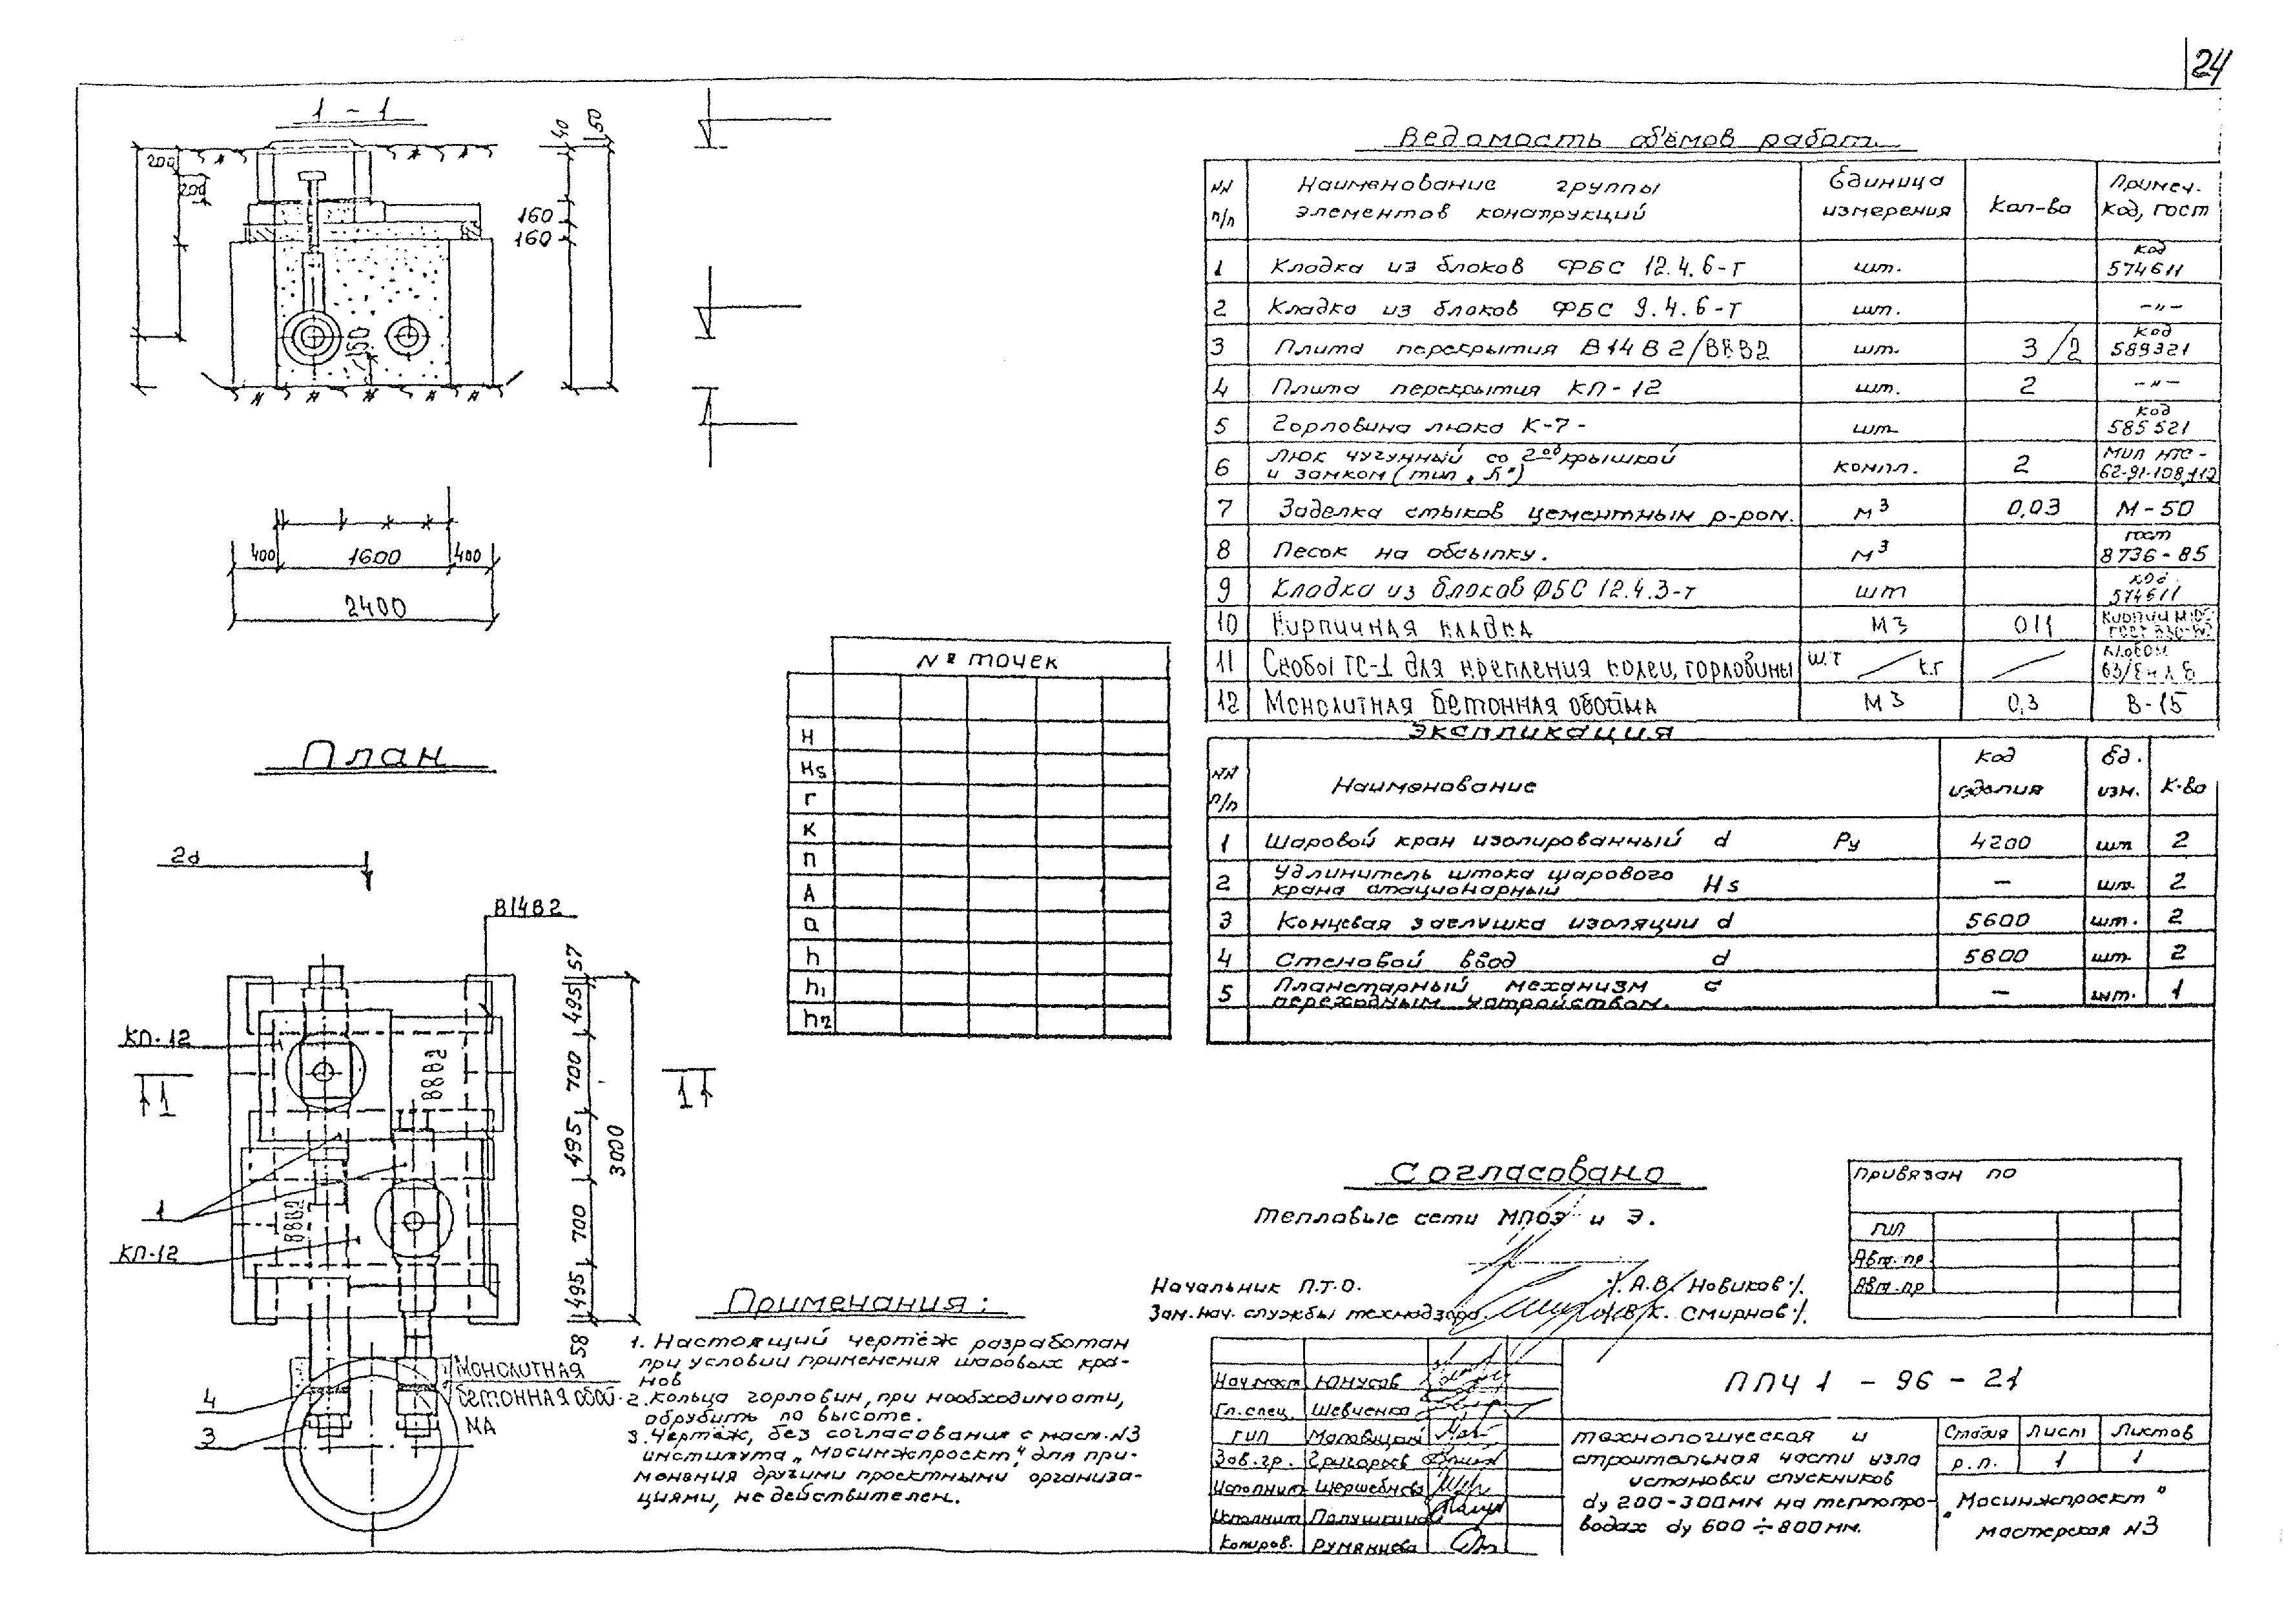 24
1 - 1
200
200
160
160
40
50
150
400 1600 400
2400
План
2d
В14В2
КП-12
8ВВ2
1 1
1
8ВВ2
КП-12
57
495
700
495
700
495
58
3000
4
3
Монолитная
бетонная обой-
ма
№ точек
H
Hs
Г
К
П
А
а
h
h1
h2
Ведомость объёмов работ.
NN п/п Наименование группы элементов конструкций Единица измерения Кол-во Примеч. код, гост
1 Кладка из блоков ФБС 12.4.6-т шт. код 574611
2 Кладка из блоков ФБС 9.4.6-т шт. -"-
3 Плита перекрытия В14В2/В8В2 шт. 3/2 код 589321
4 Плита перекрытия КП-12 шт. 2 -"-
5 Горловина люка К-7- шт. код 585521
6 Люк чугунный со 2ой крышкой и замком (тип „Л") компл. 2 62-91-108,112
7 Заделка стыков цементным р-ром. м3 0,03 М-50
8 Песок на обсыпку. м3 гост 8736-85
9 Кладка из блоков ФБС 12.4.3-т шт код 574611
10 Кирпичная кладка м3 011
11 Скобы ТС-1 для крепления колец, горловины шт / кг / Альбом
12 Монолитная бетонная обойма м3 0,3 В-15
Экспликация
NN п/п Наименование Код изделия Ед. изм. К-во
1 Шаровой кран изолированный d Ру 4200 шт 2
2 Удлинитель штока шарового крана стационарный Hs — шт. 2
3 Концевая заглушка изоляции d 5600 шт. 2
4 Стеновой ввод d 5800 шт. 2
5 Планетарный механизм с переходным устройством. — шт. 1
Согласовано
Тепловые сети МПОЭ и Э.
Начальник П.Т.О. /. А.В. Новиков /.
Зам. нач. службы технадзора. /. В.К. Смирнов /.
Привязан по
ГИП
Авт. пр.
Авт. пр
Примечания:
1. Настоящий чертёж разработан
при условии применения шаровых кра-
нов
2. Кольца горловин, при необходимости,
обрубить по высоте.
3. Чертёж, без согласования с маст. N3
института „Мосинжпроект", для при-
менения другими проектными организа-
циями, не действителен.
Нач. маст Юнусов
Гл. спец. Шевченко
ГИП
Зав. гр. Григорьев
Исполнит
Исполнит
Копиров. Румянцева
ППЧ 1 - 96 - 21
технологическая и
строительная части узла
установки спускников
dу 200-300мм на теплопро-
водах dу 600÷800мм.
Стадия Лист Листов
р.п. 1 1
„Мосинжпроект"
мастерская N3